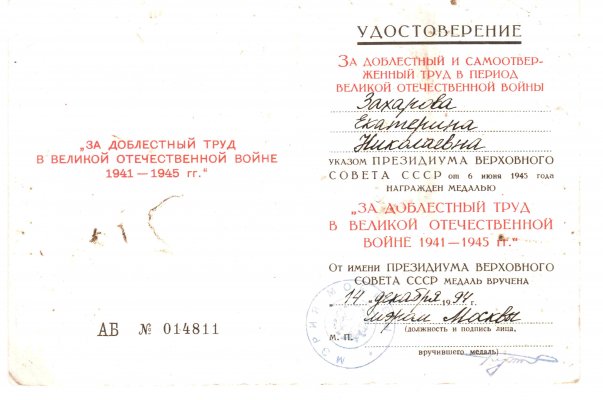 „ЗА ДОБЛЕСТНЫЙ ТРУД
В ВЕЛИКОЙ ОТЕЧЕСТВЕННОЙ ВОЙНЕ
1941 — 1945 гг.“
АБ № 014811
УДОСТОВЕРЕНИЕ
ЗА ДОБЛЕСТНЫЙ И САМООТВЕР-
ЖЕННЫЙ ТРУД В ПЕРИОД
ВЕЛИКОЙ ОТЕЧЕСТВЕННОЙ ВОЙНЫ
Захарова
Екатерина
Николаевна
УКАЗОМ ПРЕЗИДИУМА ВЕРХОВНОГО
СОВЕТА СССР от 6 июня 1945 года
НАГРАЖДЕН МЕДАЛЬЮ
„ЗА ДОБЛЕСТНЫЙ ТРУД
В ВЕЛИКОЙ ОТЕЧЕСТВЕННОЙ
ВОЙНЕ 1941 — 1945 гг.“
От имени ПРЕЗИДИУМА ВЕРХОВНОГО
СОВЕТА СССР МЕДАЛЬ ВРУЧЕНА
14 декабря 1994 г.
Москвы
(должность и подпись лица,
М. П.
вручившего медаль)